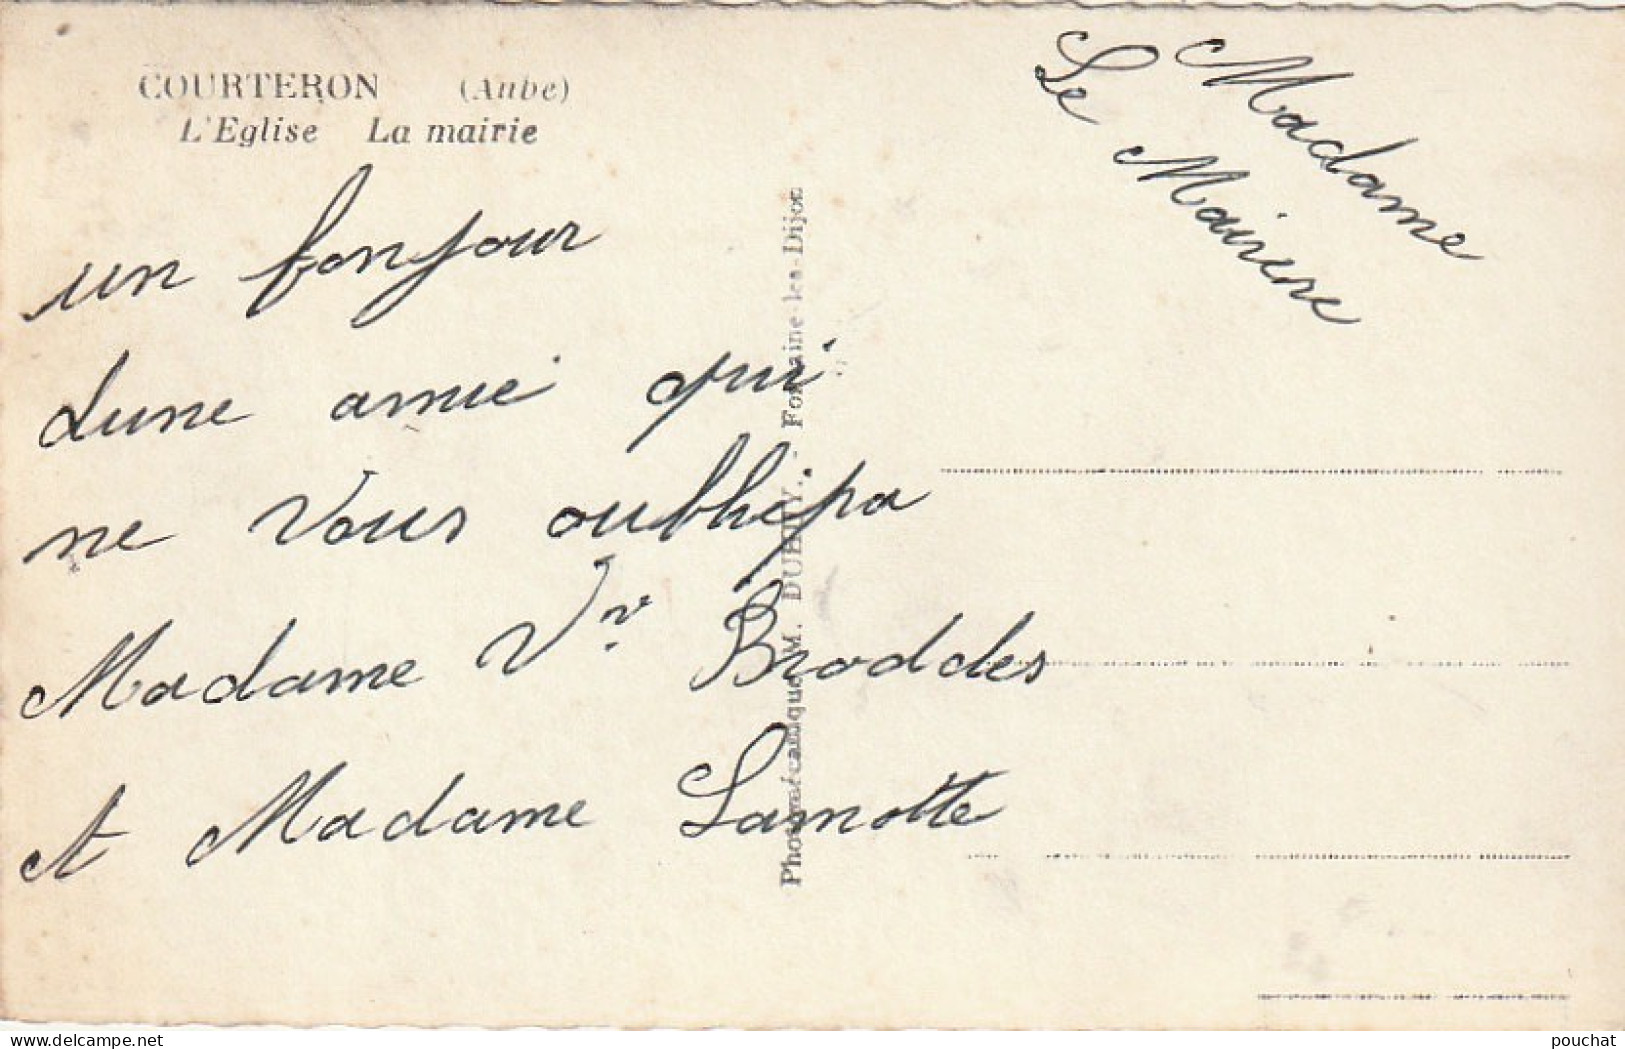 COURTERON (Aube)
L'Eglise La mairie
un bonjour
dune amie qui
ne vous oublhepa
Madame Vv Broddes
et Madame Lamotte
Madame
Le Mairere
Photomécanique M. DUBUY. - Fontaine-les-Dijon
www.delcampe.net
pouchat